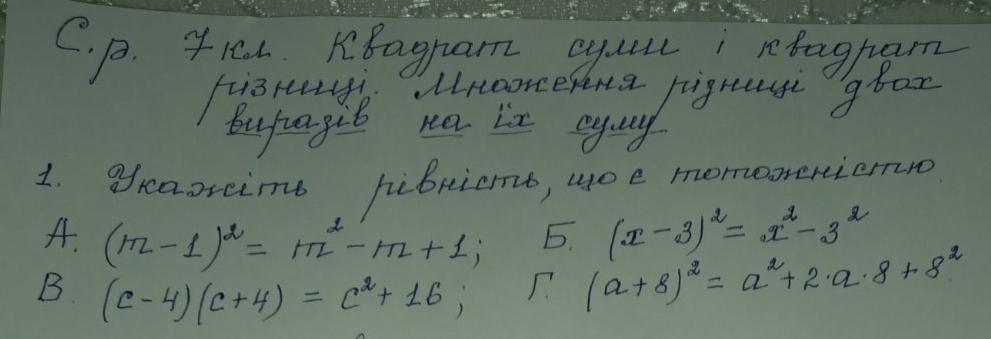 С.р. 7 кл. Квадрат суми і квадрат
різниці. Множення різниці двох
виразів на їх суму
1. Укажіть рівність, що є тотожністю.
А. (m - 1)² = m² - m + 1; Б. (x - 3)² = x² - 3²
В. (c - 4)(c + 4) = c² + 16; Г. (a + 8)² = a² + 2·a·8 + 8².